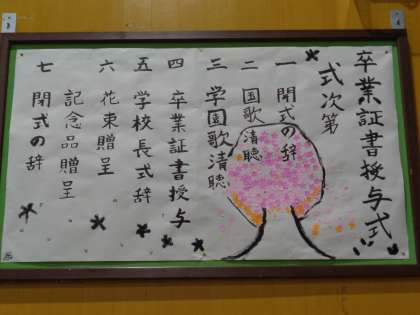 卒業証書授与式
式次第
一 開式の辞
二 国歌清聴
三 学園歌清聴
四 卒業証書授与
五 学校長式辞
六 花束贈呈
記念品贈呈
七 閉式の辞